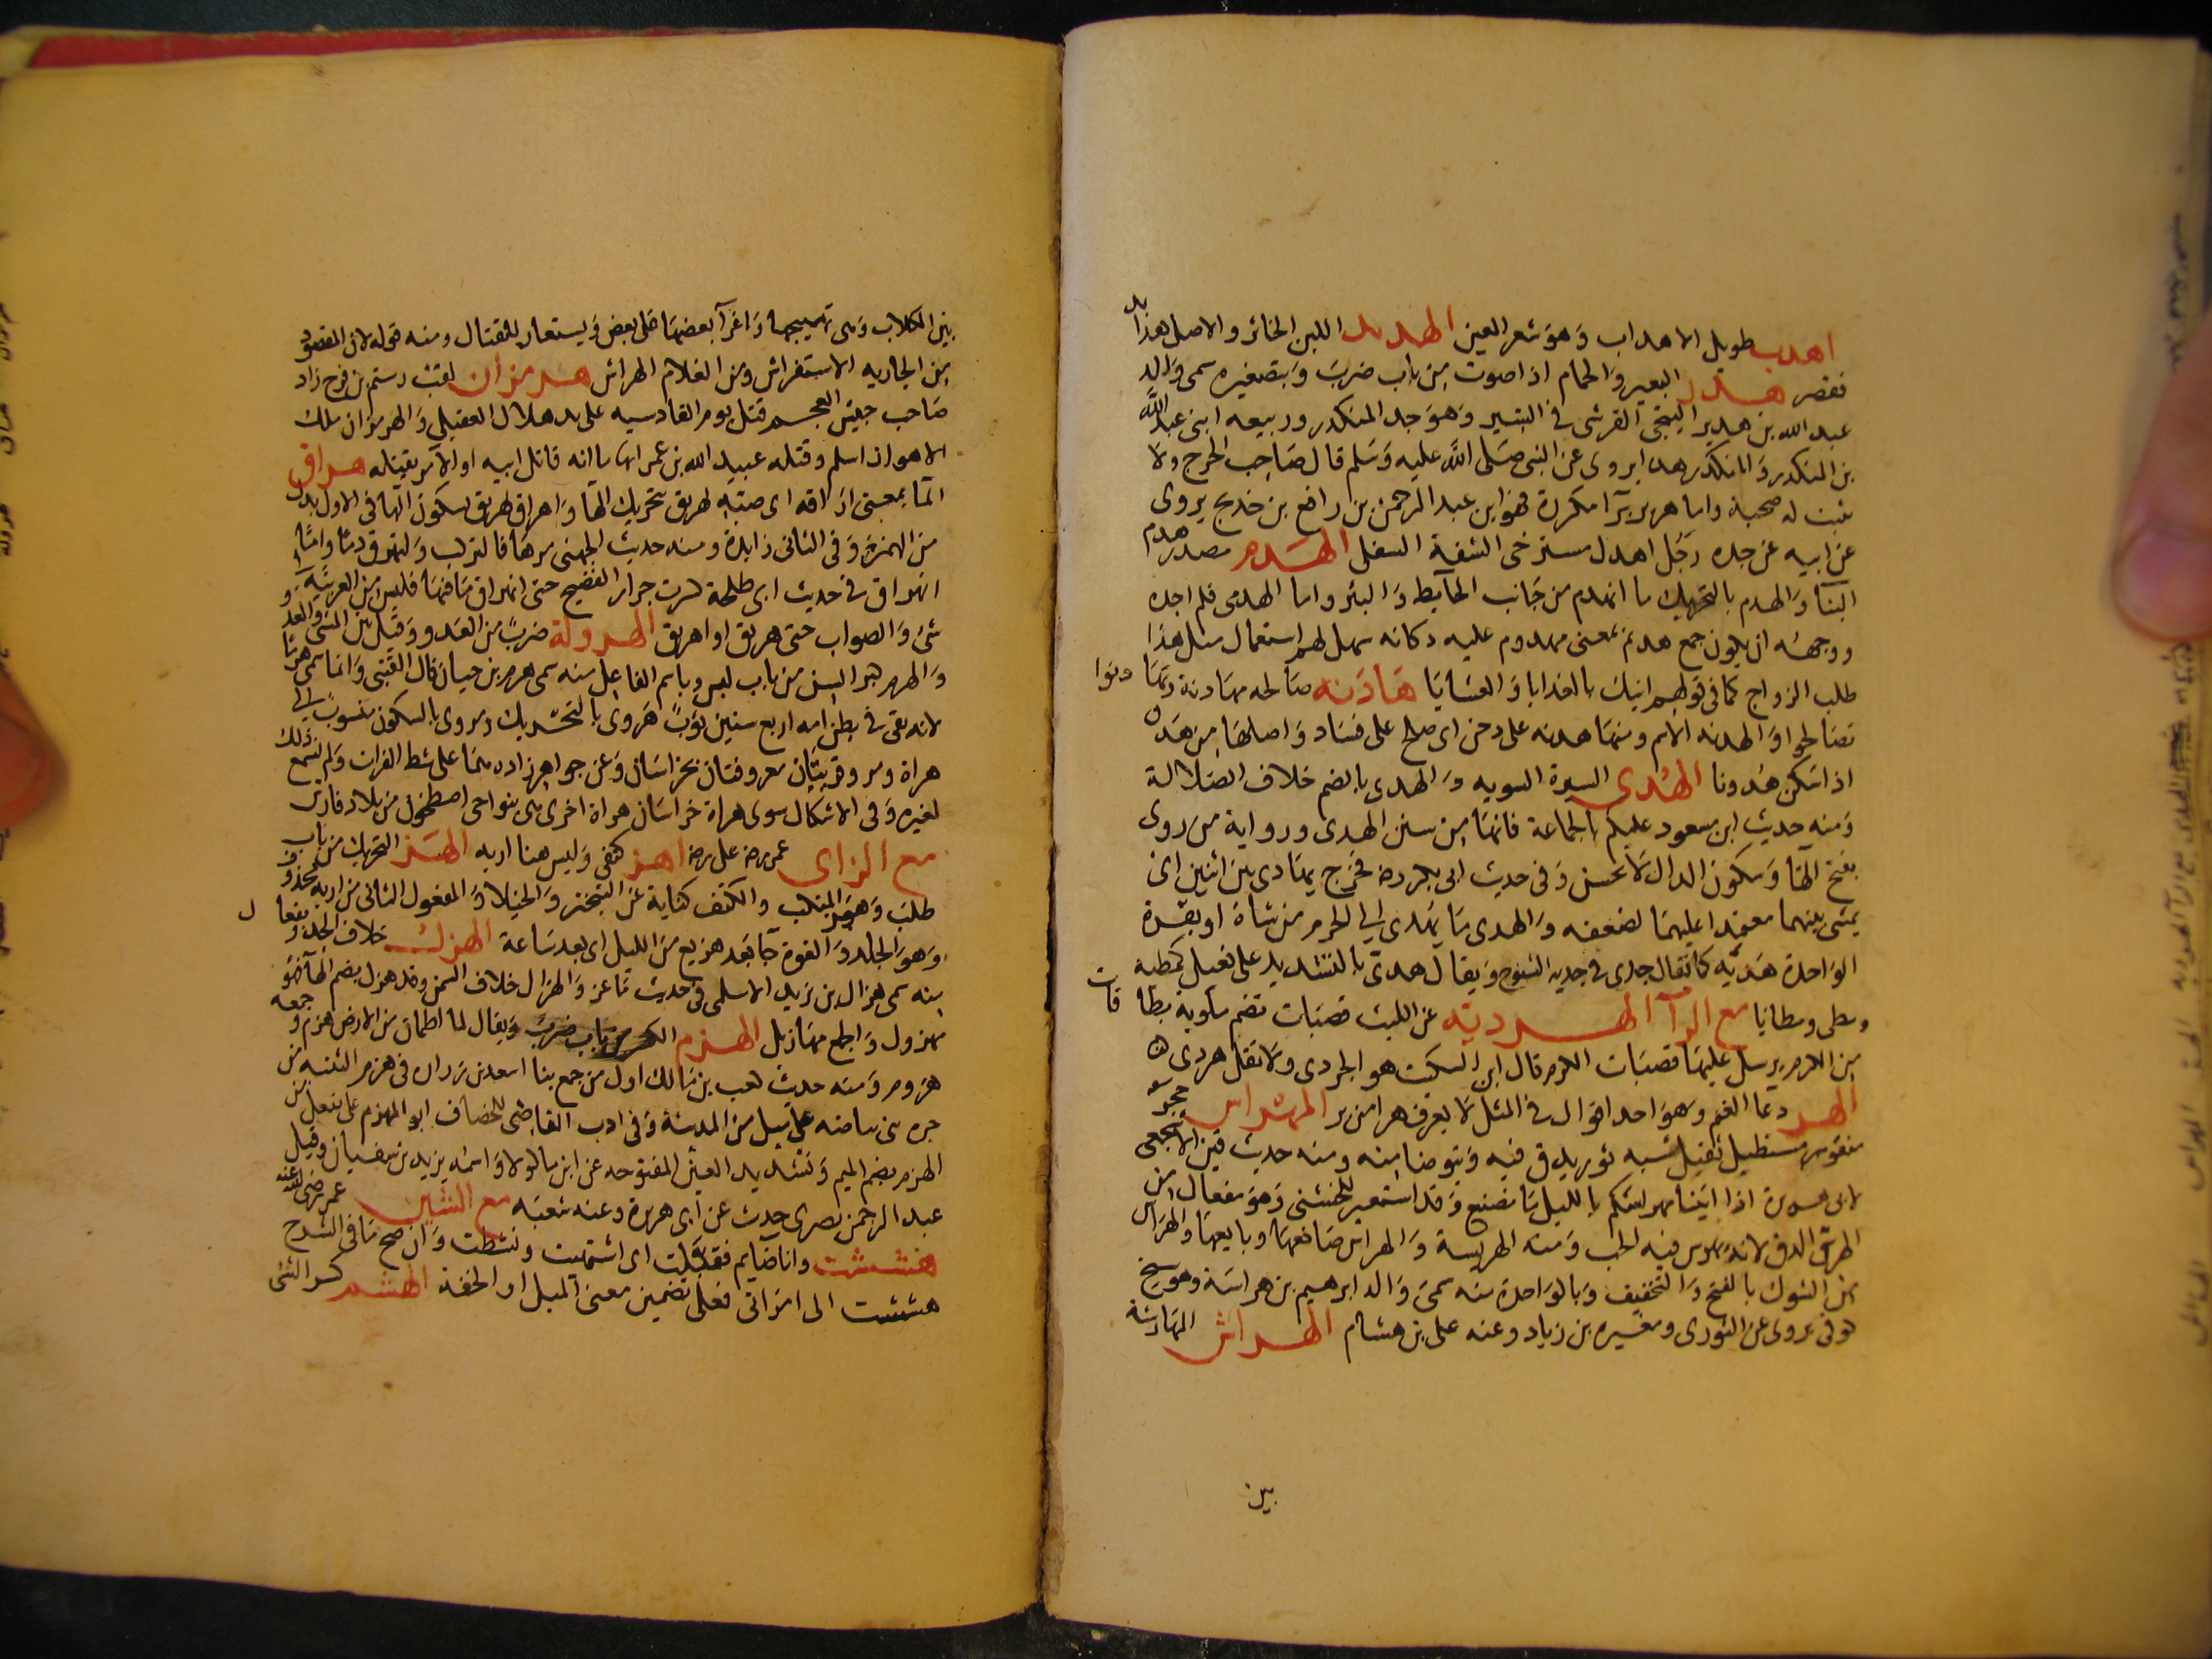 اهدب طويل الاهداب وَهوَ شعر العين الهدبد اللبن الخاثر والاصل هدابد
فقصر هدل البعير وَالحمام اذا صوت من باب ضربَ وَبتصغيره سمى وَالد
عبد الله بن هدير التيمى القرشى فى السير وَهوَ جد المنكدر وربيعه ابنى عبد الله
بن المنكدر وَالمنكدر هذا يروى عن النبى صَلى اللّه عليه وَسَلم قال صَاحب الجرح ولا
يثبت له صحبة واما هرير برآ مكررة فهو ابن عبد الرحمن بن رافع بن خديج يروى
عن ابيه عن جده رجُل اهدل مسترخى الشفة السفلى الهدم مصدر هدم
البنآ وَالهدم بالتحريك ما انهدم من جَانب الحآيط وَالبئر واما الهدمى فلم اجده
ووجهُه ان يكون جمع هدم بمعنى مهدوم عليه وكانه سهل لهم استعمال مثل هذا
طلب الزواج كما فى قولهم اتيك بالغدايا وَالعشايا هَادَنه صَالحه مهَادنة وتهَادنوا
تصَالحوا وَالهدنه الاسم ومنهَا هدنه على دخن اى صلح على فسَاد وَاصلهَا من هَدن
اذا سكن هُدونا الهُدى السيرة السويه وَالهدى بالضم خلاف الضلالة
وَمنه حديث ابن مسعود عليكم بالجماعة فانهَا من سنن الهدى ورواية من روى
بفتح الهَا وَسكون الدال لاَ تحسن وَفى حديث ابى بكر رضه فخرج يهَادى بين اثنين اى
يمشى بينهما معتمدا عليهمَا لضعفه وَالهدى مَا يهدى الى الحرم من شاة او بقرة
الوَاحدة هَدْيه كا يقال جدى فى جدية السرج وَيقال هدىّ بالتشديد على فعيل كمطية
ومطى ومطايا مع الرآ الهرديّة عن الليث قصبَات تضم ملوية بطاقات
من الكرم يرسل عليهَا قصبَات الكرم قال ابن السكيت هو الحردى ولاَ تقل هردى
الهر دعا الغنم وَهوَ احد اقوال فى المثل لاَ يعرف هرا من بر المهراس حجر
منقور مستطيل ثقيل شبه تور يدق فيه وَيتوضا منه ومنه حديث قين الاشجعى
لابى هريرة اذا اتينا مهراسكم بالليل مَا نصنع وَقد استعير للخشبى وَهوَ مفعال من
الهرس الدق لانه يهرس فيه الحب وَمنه الهريسة وَالهراس صَانعهَا وبايعهَا وَالهرَاس
من الشوك بالفتح وَالتخفيف وَبالوَاحدة منه سمىَ وَالد ابرهيم بن هراسَة وهو شيخ
كوفى يروى عن الثورى ومغيره بن زياد وعنه على بن هشام الهراش المهَارشة
بين
بين الكلاب وَهى تهييجها وَاغرآ بعضهَا على بعض وَيستعار للقتال ومنه قوله لان المقصود
من الجاريه الاستفراش ومن الغلام الهراش هرمزان لقب رستم بن فرخ زاد
صَاحب جيش العجم قتل يوم القادسيه على يد هلال العقيلى وَالهرمزان ملك
الاهواز اسلم وقتله عبيد الله بن عمر اتهاما انه قاتل ابيه او الآمر بقتله هراق
المآ بمعنى اراقه اى صبّه يهريق بتحريك الهَا وَاهراق يهريق بسكون الهَا فى الاول بدل
من الهمزة وَفى الثانى زايدة ومنه حديث الجهنى مرهَا فالتركب وَلتهرق دمًا وامّا
انهراق فى حديث ابى طلحة كسرت جرار الفضيخ حتى انهراق مَا فيهَا فليس من العربيّة فى
شئ وَالصواب حتى هريق او اهريق الهرولة ضربٌ من العَدو وَقيل بين المشى وَالعَدو
وَالهرم كبر السن من باب لبس وباسم الفاعل منه سمى هرم بن حيان قال القتبى وَانما سمى هرمًا
لانه بقى فى بطن امه اربع سنين ثوبٌ هَروى بالتحريك ومروى بالسكون منسوبٌ الى
هراة ومرو قريتان معروفتان بخراسَان وَعن جواهر زاده همَا على شط الفرات وَلم نسمع ذلك
لغيره وَفى الاشكال سوى هراة خراسَان هراة اخرى هى بنواحى اصطخر من بلاد فارس
مع الزاى عمر رضه على رضه اهز كتفى وَليس هنا اربه الهَز التحريك من باب
طلبَ وَهوَ المنكب والكتف كناية عن التبختر وَالخيلا وَالمفعول الثانى من اربه محذوف
وَهوَ الجلد وَالقوة جآ بَعد هزيع من الليل اى بعد سَاعة الهزل خلاف الجد وبفعال
منه سمى هزال بن يزيد الاسلمى فى حديث مَاعز وَالهزال خلاف السمن وقد هزل بضم الهآ فهو
مهزول وَالجمع مهَازيل الهزم الكسر من باب ضربَ وَيقال لما اطمان من الارض هزم وجمعه
هزوم وَمنه حديث كعب بن مَالك اول من جمع بنا اسعد بن زراره فى هزم النبيت من
حره بنى بياضه على ميل من المدينة وَفى ادب القاضى للخصاف ابو المهزم على مفعل من
الهزم بضم الميم وَتشديد العين المفتوحه عن ابن ماكولا وَاسمه يزيد بن سفيان وقيل
عبد الرحمن بصرى حدث عن ابى هريرة وعنه شعبَه مع الشين عمر رضى الله عنه
هششت وانا صَايم فقبلت اى اشتهيت ونشطت وَان صح مَا فى الشرح
هششت الى امرَاتى فعلى تضمين معنى الميل او الخفة الهشم كسر الشئ